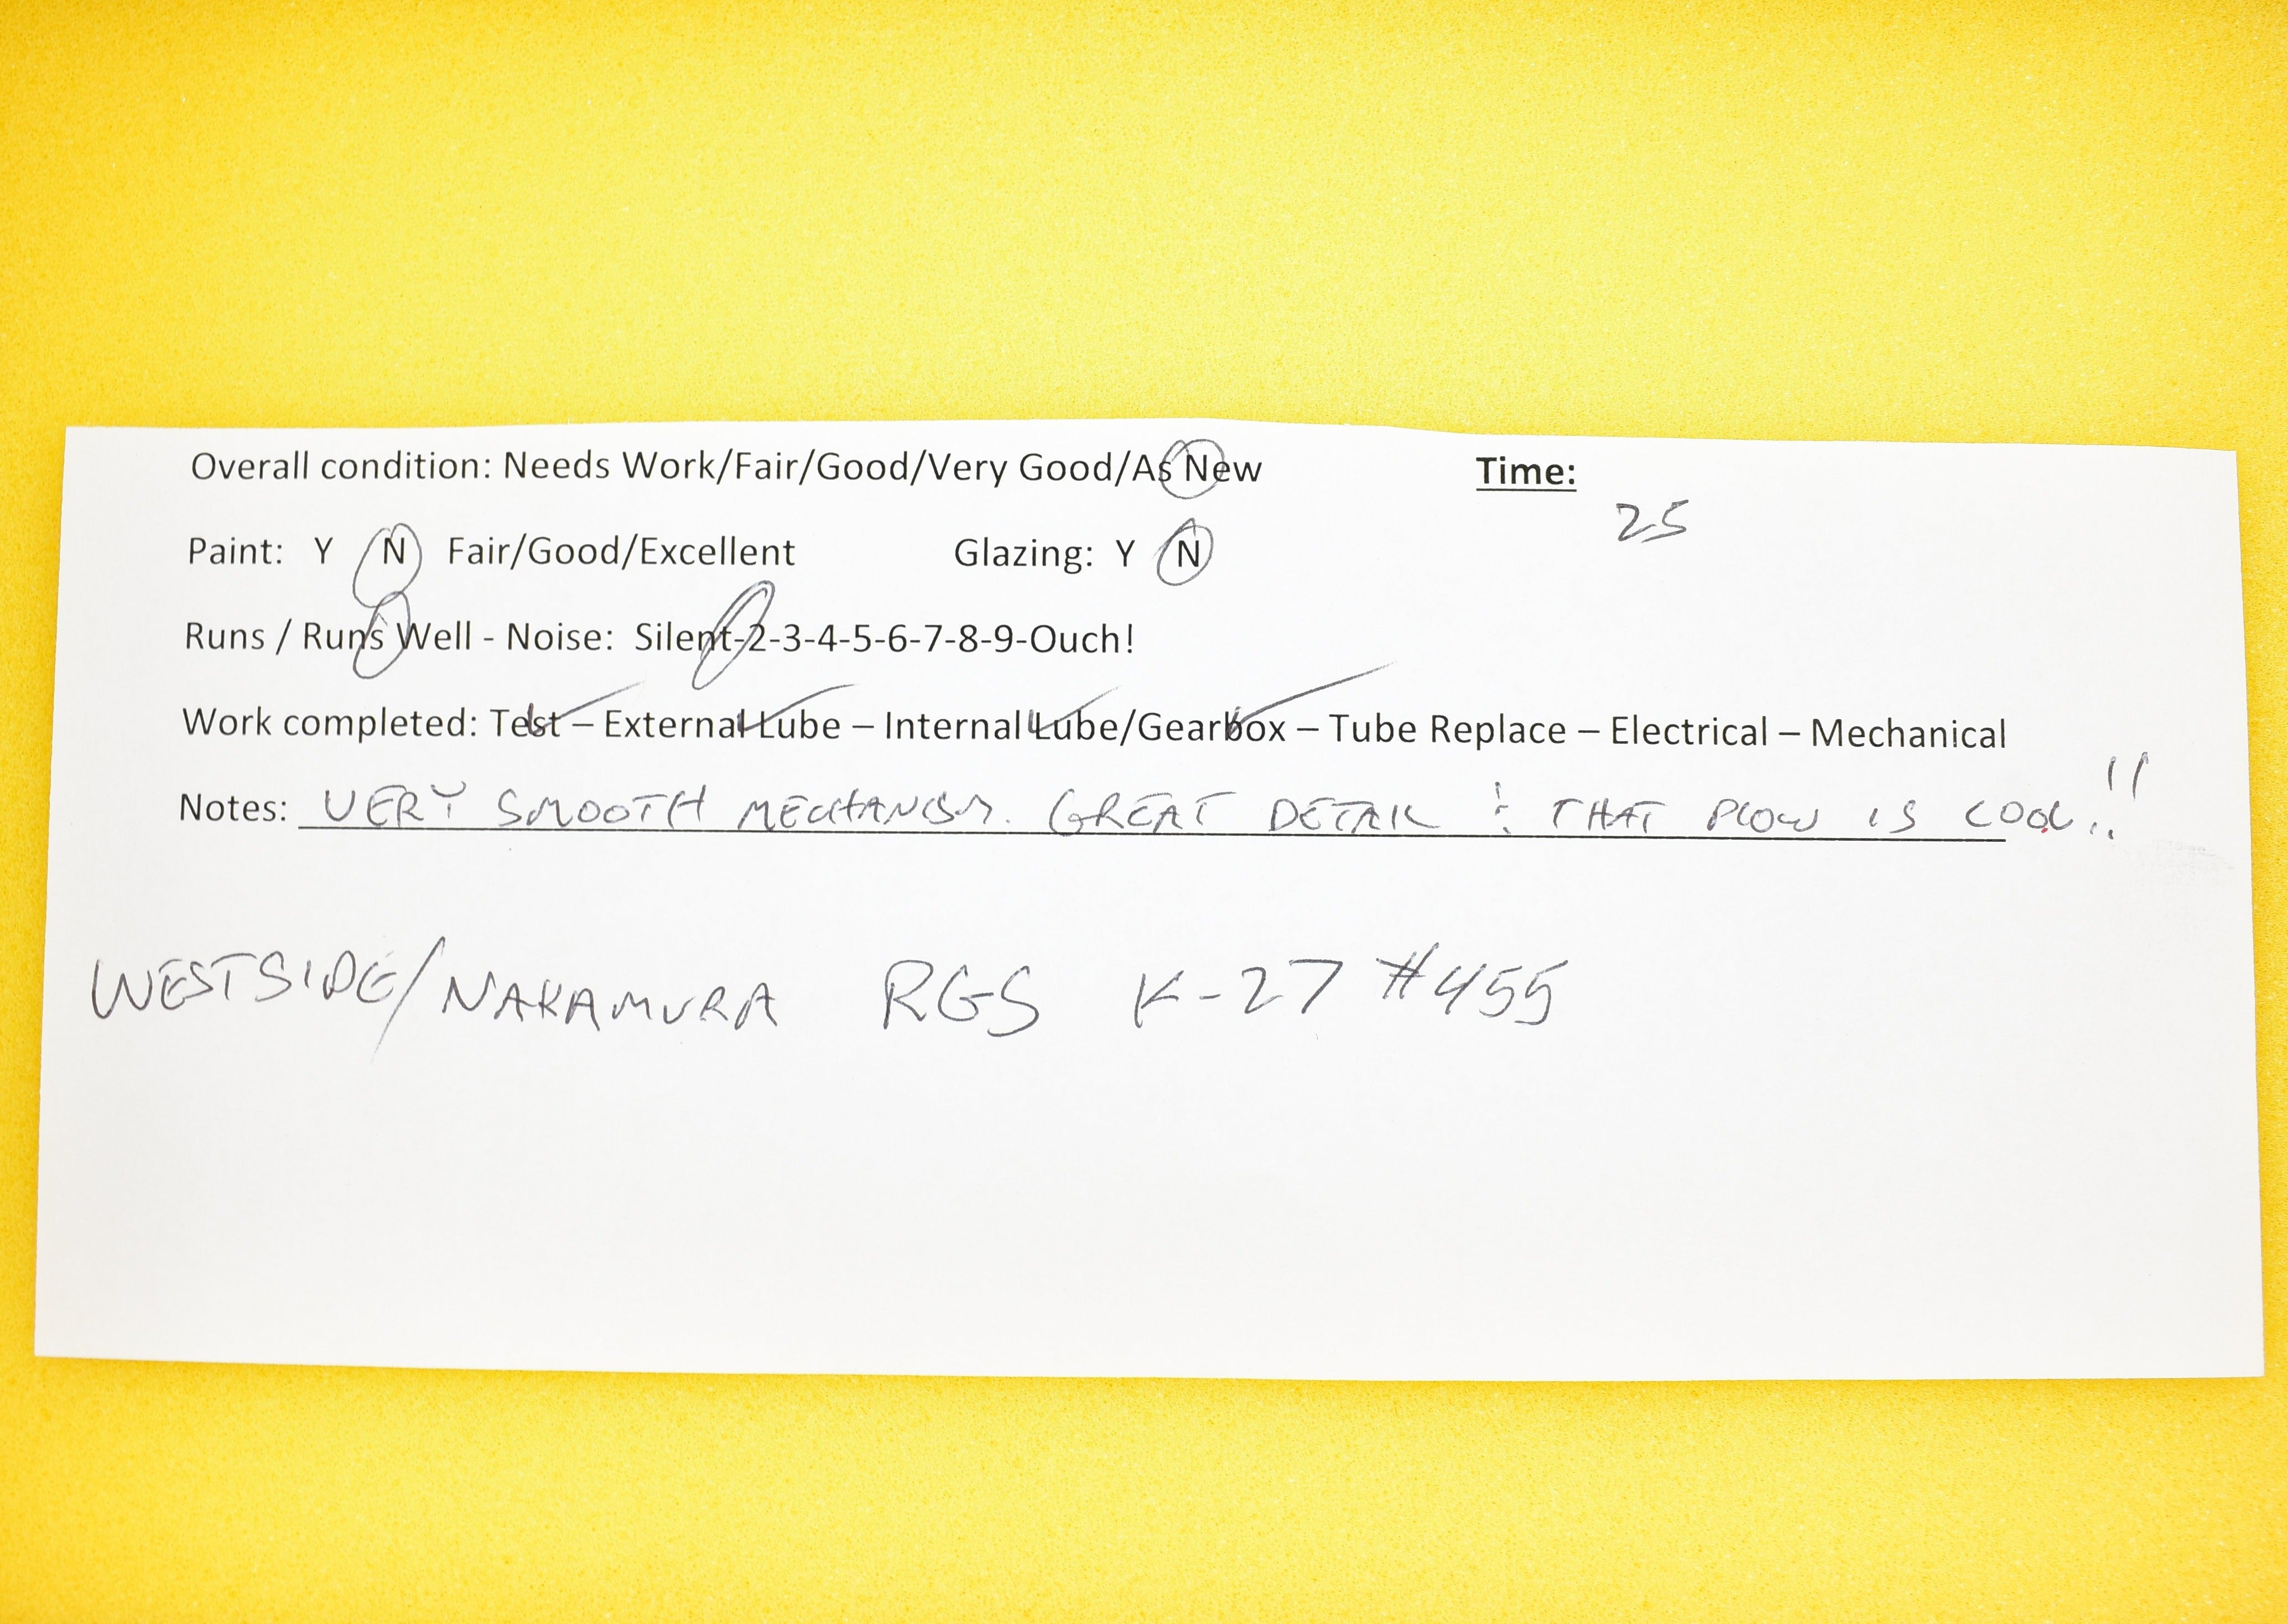 Overall condition: Needs Work/Fair/Good/Very Good/As New Time:
25
Paint: Y N Fair/Good/Excellent Glazing: Y N
Runs / Runs Well - Noise: Silent-2-3-4-5-6-7-8-9-Ouch!
Work completed: Test – External Lube – Internal Lube/Gearbox – Tube Replace – Electrical – Mechanical
Notes: VERY SMOOTH MECHANISM. GREAT DETAIL & THAT PLOW IS COOL!!
WESTSIDE/NAKAMURA RGS K-27 #455